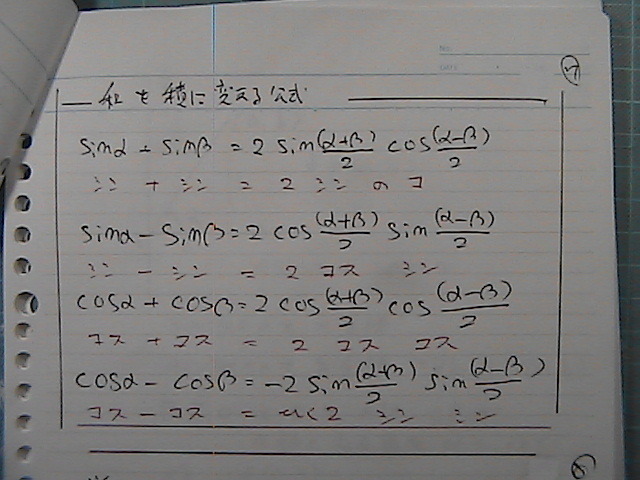 No.
DATE
⑦
和を積に変える公式
sinα + sinβ = 2 sin (α+β)/2 cos (α-β)/2
シン + シン = 2 シン の コ
sinα - sinβ = 2 cos (α+β)/2 sin (α-β)/2
シン - シン = 2 コス シン
cosα + cosβ = 2 cos (α+β)/2 cos (α-β)/2
コス + コス = 2 コス コス
cosα - cosβ = -2 sin (α+β)/2 sin (α-β)/2
コス - コス = 2 シン シン